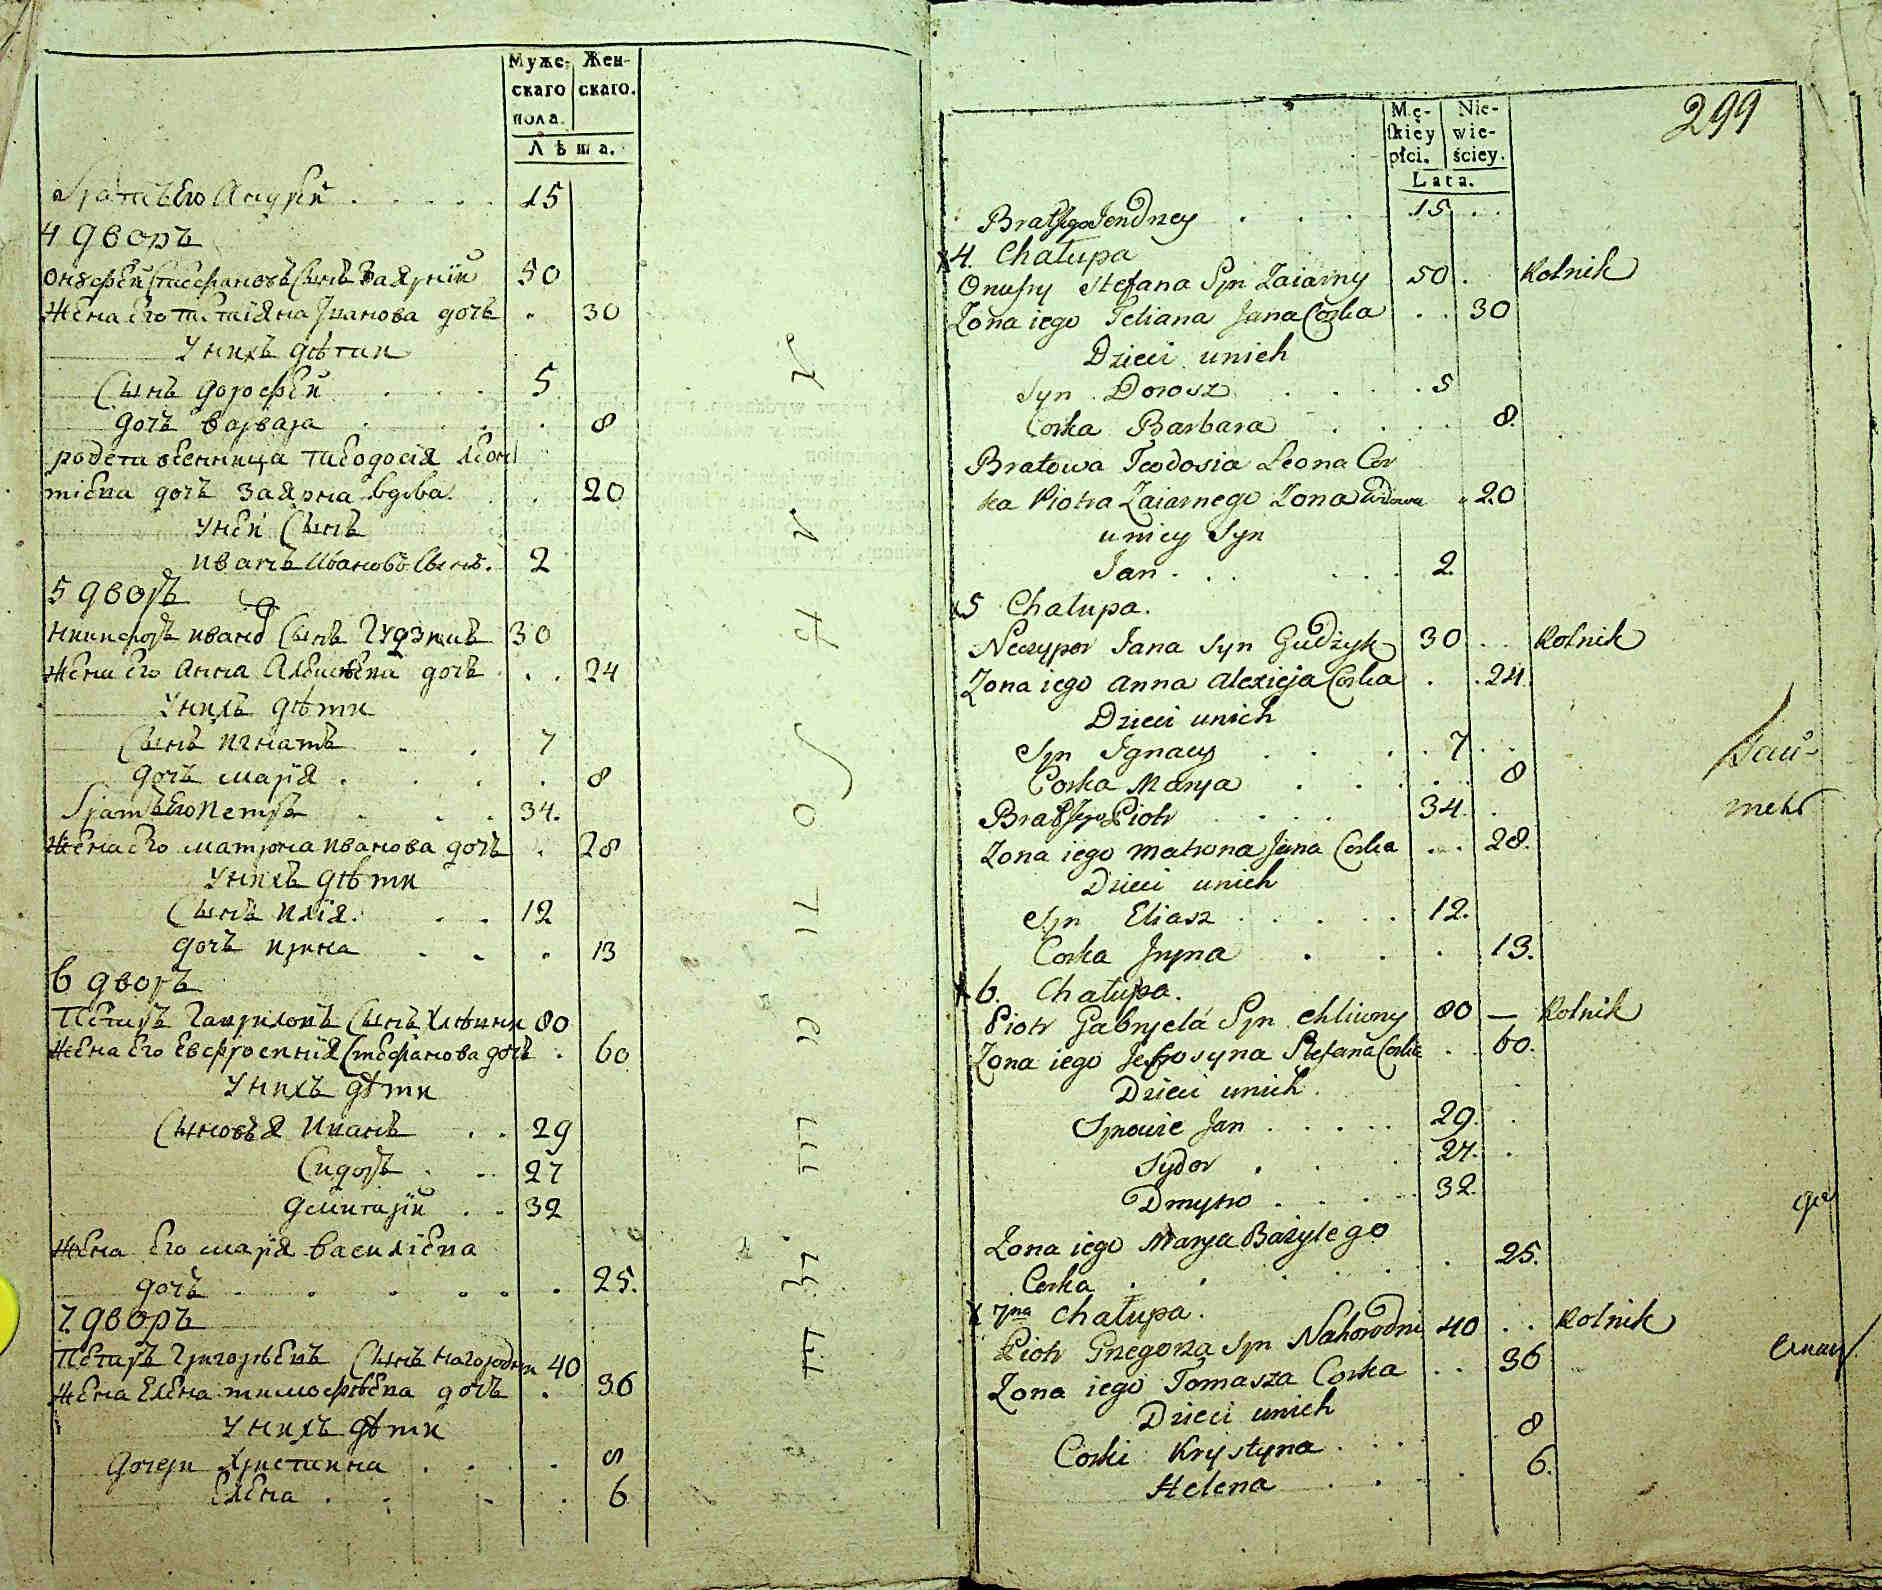 Муже- Жен-
скаго скаго.
пола.
Лѣта.
братъ Его Андрей 15
4 дворъ
Онуфрей Стефановъ Сынъ Заярный 50
Жена Его Татіяна Иванова дочь 30
У нихъ дѣти
Сынъ дорофей 5
дочь варвара 8
родственница Феодосія леон
тіева дочь Заярна вдова 20
У ней Сынъ
иванъ Ивановъ Сынъ. 2
5 дворъ
Никифоръ иванов Сынъ Гудзикъ 30
Жена Его Анна Алексѣева дочь 24
У нихъ дѣти
Сынъ игнатъ 7
дочь марія 8
братъ Его Петръ 34.
Жена Его матрона иванова дочь 28
У нихъ дѣти
Сынъ илія. 12
дочь ирина 13
6 дворъ
Петръ Гавриловъ Сынъ Хлѣвни 80
Жена Его Евфросинія Стефанова дочь 60
У нихъ дѣти
Сыновья Иванъ 29
Сидоръ 27
Димитрій 32
Жена Его марія василіева
дочь 25.
7 дворъ
Петръ Григорьевъ Сынъ Нагородни 40
Жена Елена тимофѣева дочь 36
У нихъ дѣти
Дочери Христина 8
Елена 6
299
Mę- Nie-
skiey wie-
płci. ściey.
Lata.
Brat Jego Jendrzey 15
4. Chałupa
Onufry Stefana Syn Zaiarny 50 Rolnik
Żona iego Tetiana Jana Corka 30
Dzieci unich
Syn Dorosz 5
Corka Barbara 8.
Bratowa Teodosia Leona Cor
ka Piotra Zaiarnego Żona wdowa 20
uniey Syn
Jan 2
5 Chałupa.
Neczypor Jana Syn Gudzyk 30 Rolnik
Żona iego Anna Alexieja Corka 24.
Dzieci unich
Syn Ignacy 7
Corka Marya 8
Brat Jego Piotr 34
Żona iego Matrona Jana Corka 28.
Dzieci unich
Syn Eliasz 12.
Corka Jryna 13.
6. Chałupa.
Piotr Gabryela Syn Chliwny 80 — Rolnik
Żona iego Jefrosyna Stefana Corka 60.
Dzieci unich.
Synowie Jan 29.
Sydor 27.
Dmytro 32.
Żona iego Marya Bazylego
Corka 25.
7ma Chałupa.
Piotr Gregorza Syn Nahorodni 40 Rolnik
Żona iego Tomasza Corka 36
Dzieci unich
Corki Krystyna 8
Helena 6.